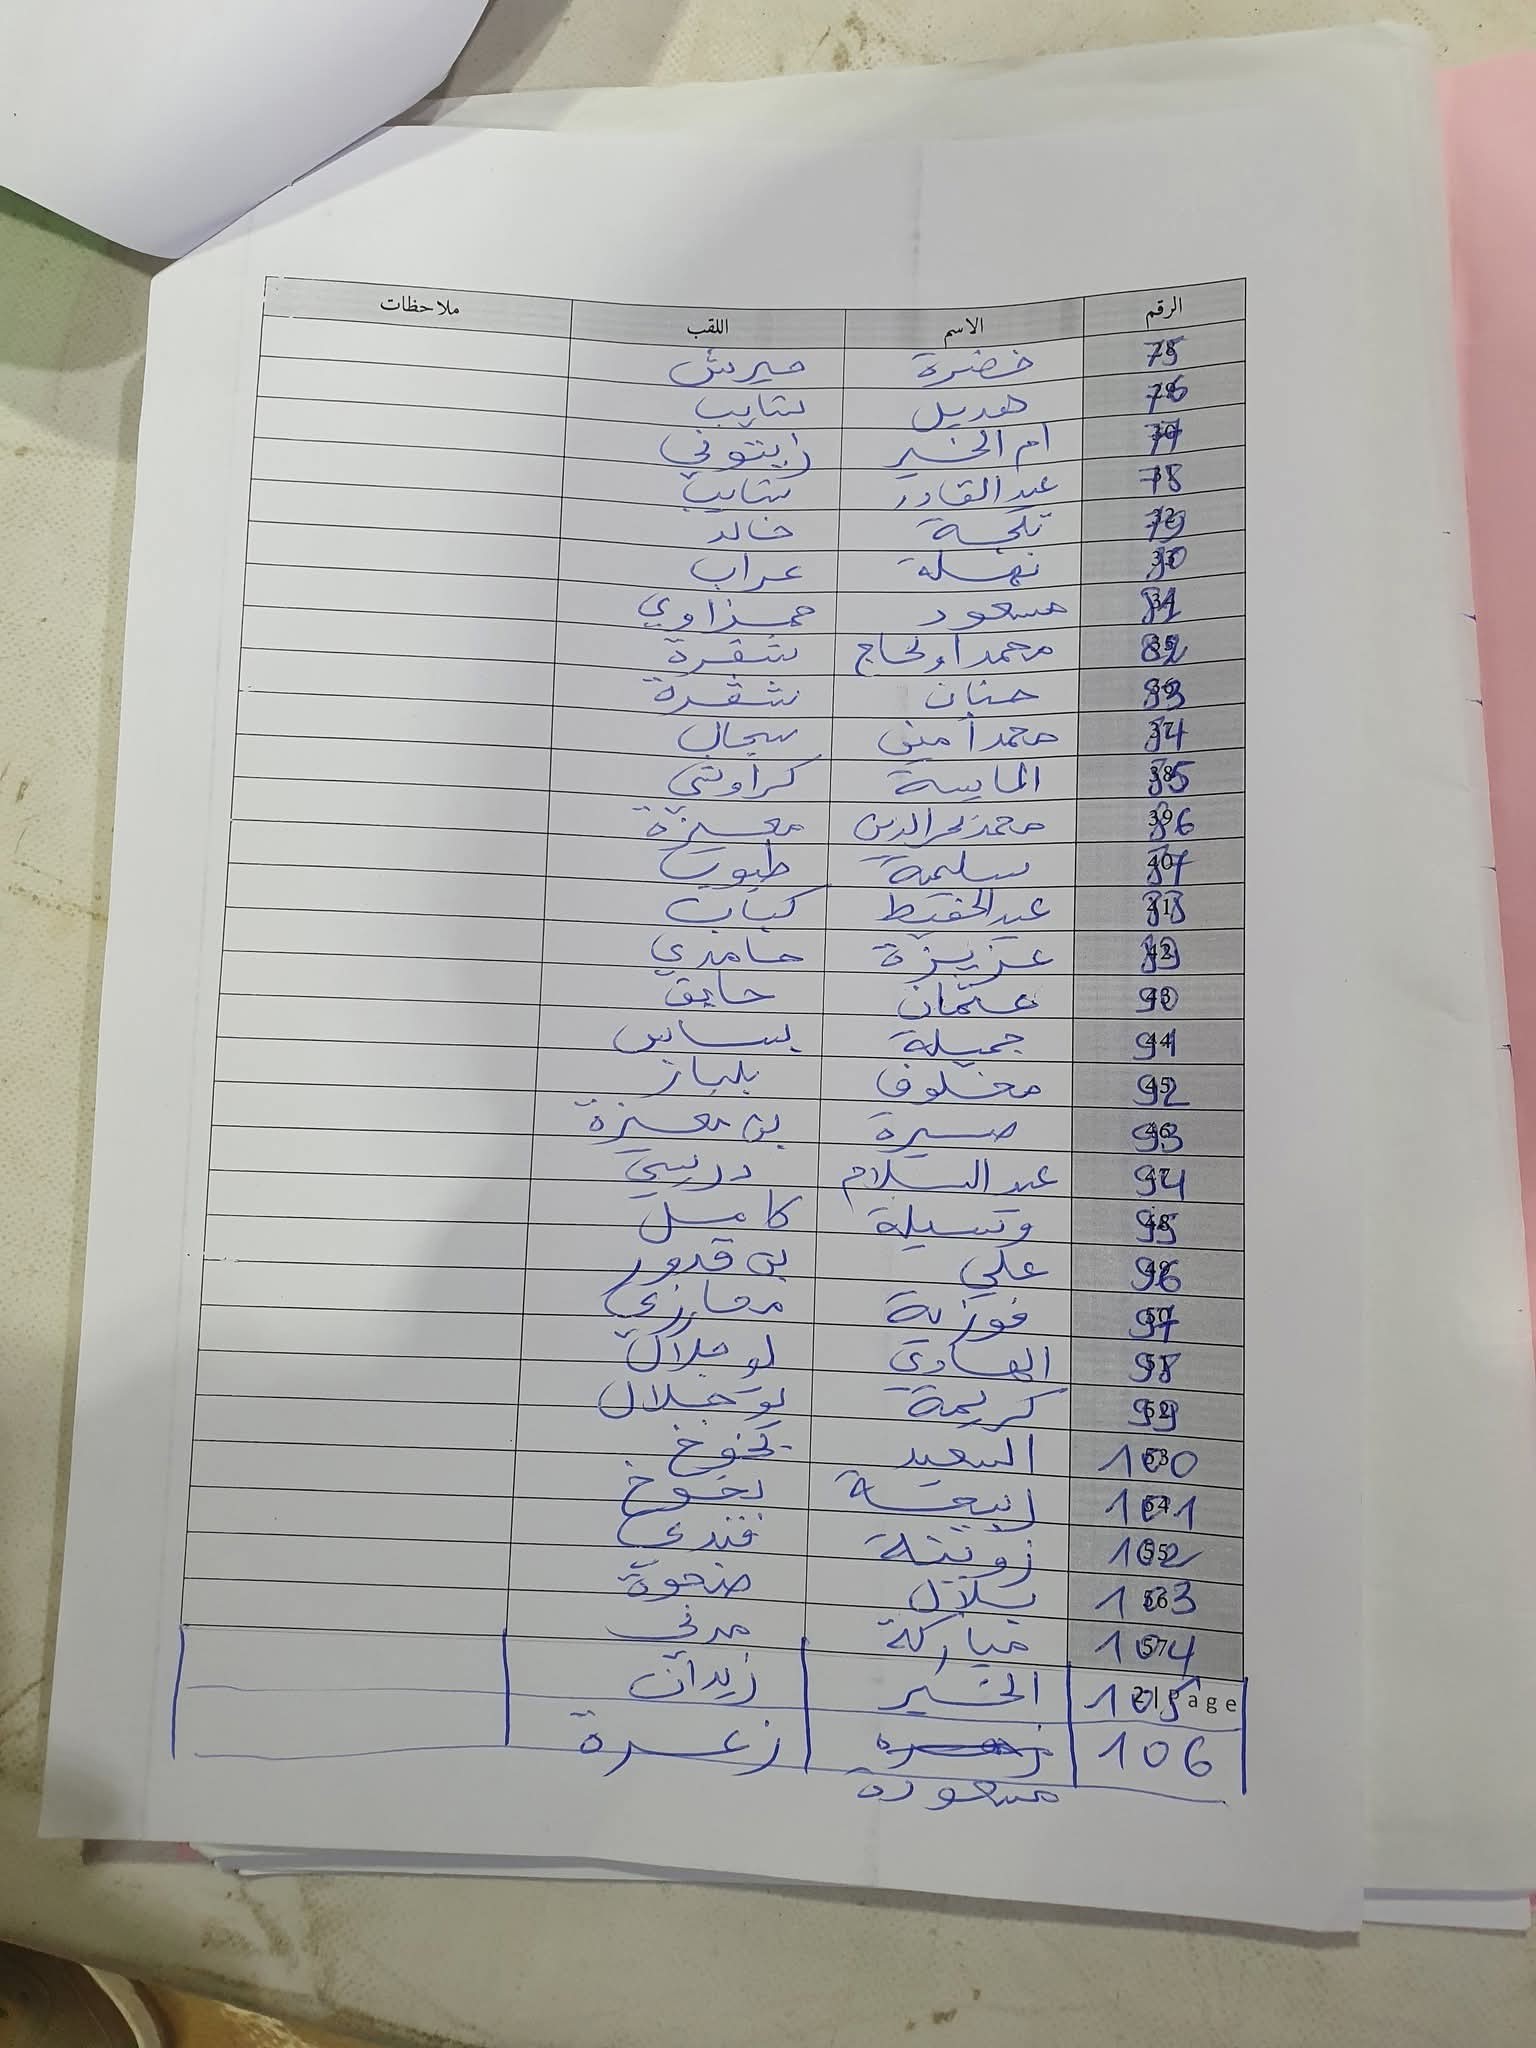 الرقم الاسم اللقب ملاحظات
75 خضرة ميرش
76 هديل شايب
77 ام الخير زيتوني
78 عبد القادر شايب
79 خالد
80 نهلة عراب
81 مسعود حمزاوي
82 محمد اولحاج شقرة
83 حنان شقرة
84 محمد أمين سجال
85 الماسة
86 محمد معيزة
87 سليمة طيوب
88 عبد الحفيظ كباب
89 عزيزة حامدي
90 عثمان حايق
91 جميلة بساس
92 مخلوف بلباز
93 صبيرة بن معيزة
94 عبد السلام دريسي
95 وسيلة كامل
96 علي بن قدور
97 فوزية معازي
98 الهادي بوجلال
99 كريمة بوجلال
100 السعيد بخوخ
101 ربيعة بخوخ
102 زوينة قندي
103 بلال
104 مباركة مدني
105 الخير زيدان
106 زعرة
مسعودة